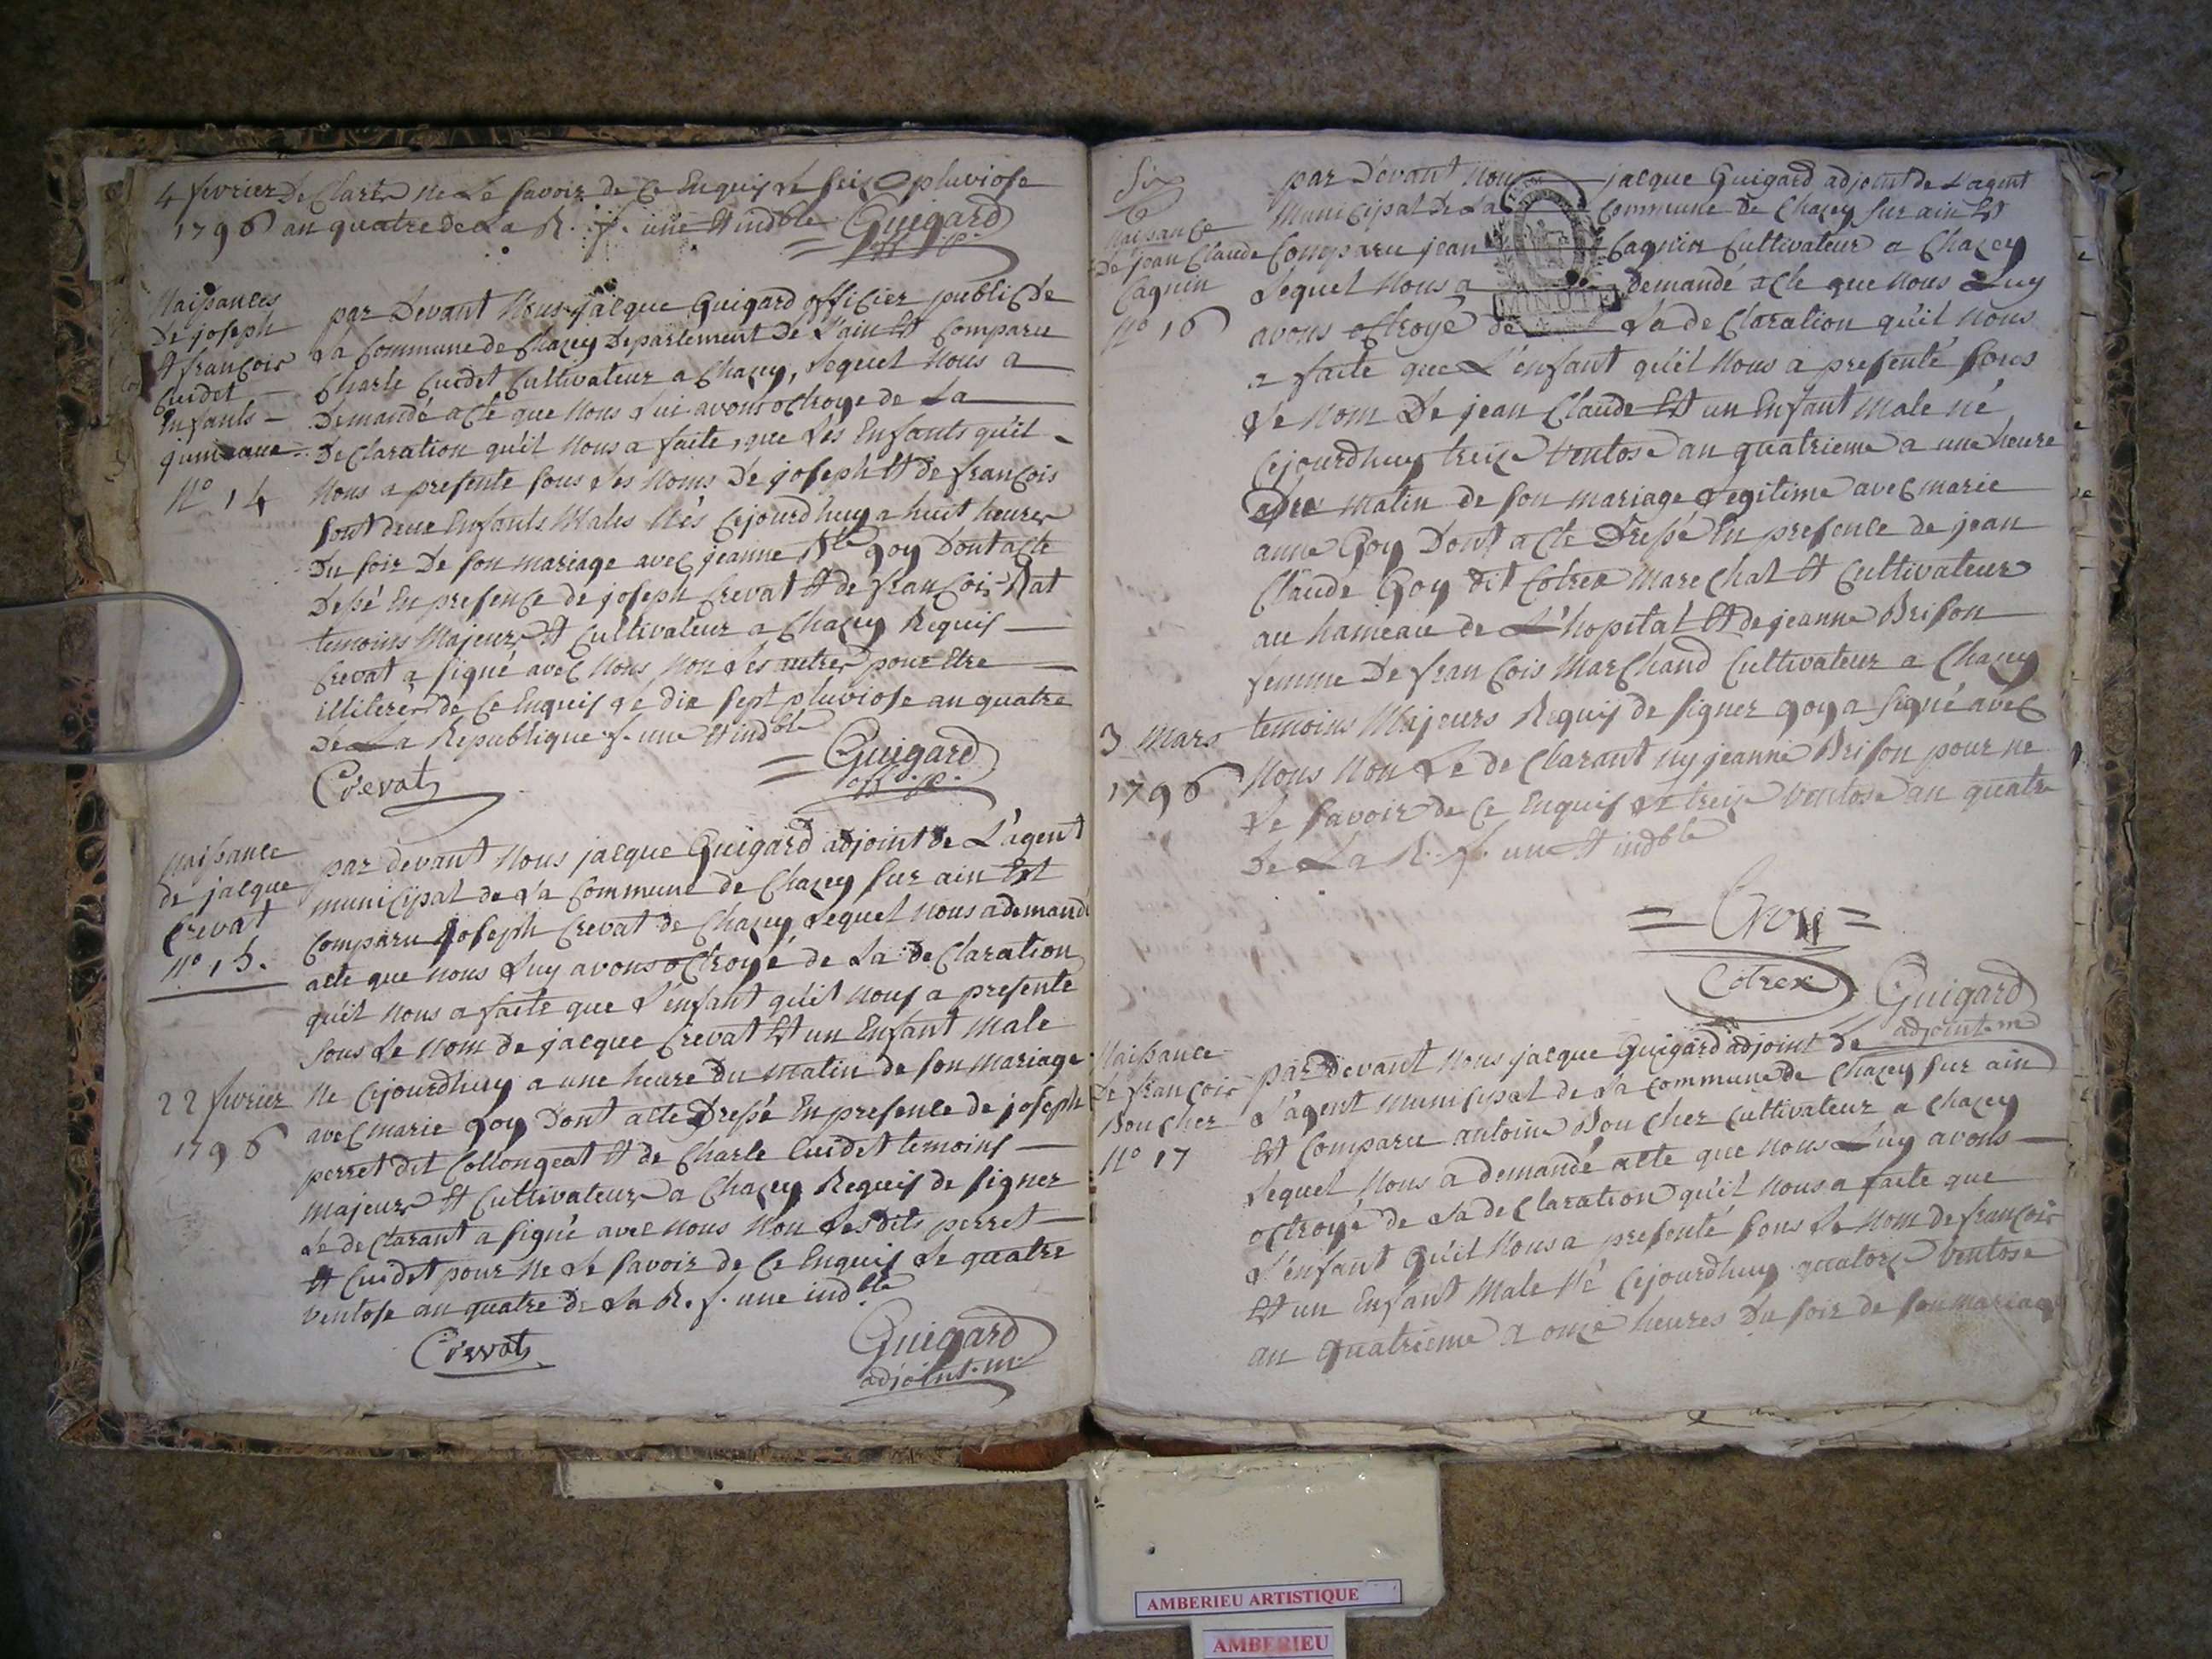 4 fevrier De Clarer ne Le Savoir de Ce Enquis Le Seize pluviose
1796 an quatre de La R. f. une Et indble Guigard
off. p.
Naissances
De joseph
Et francois
Cuidet
Enfants
N° 14
par Devant Nous jacque Guigard officier public de
La Commune de Chazey Departement de L'ain Est Comparu
Charle Cuidet Cultivateur a Chazey, Lequel Nous a
Demandé acte que Nous Lui avons octroye de La
DeClaration qu'il Nous a faite, que Les Enfants qu'il
Nous a presente Sous Les Noms De joseph Et de francois
Sont deux Enfants Males Nés Cejourd'huy a huit heures
Du Soir De Son mariage avec jeanne goy Dont acte
Dressé En presence de joseph Crevat Et de francois Rat
temoins Majeurs Et Cultivateur a Chazey Requis
Crevat a Signé avec Nous Non Les autres pour Etre
illiterés de Ce Enquis Le dix Sept pluviose an quatre
De La Republique f. une Et indble
Crevat
Guigard
off. p.
Naissance
de jacque
Crevat
N° 15.
22 fevrier
1796
par devant Nous jacque Guigard adjoint de L'agent
municipal de La Commune de Chazey Sur ain Est
Comparu Joseph Crevat de Chazey Lequel Nous a demandé
acte que Nous Luy avons octroyé de La DeClaration
qu'il Nous a faite que L'enfant qu'il Nous a presente
Sous Le Nom de jacque Crevat Est un Enfant Male
Ne Cejourdhuy a une heure Du matin de Son Mariage
avec marie goy Dont acte Dressé En presence de joseph
perret dit Collongeat Et de Charle Cuidet temoins
Majeurs Et Cultivateurs a Chazey Requis de Signer
Le deClarant a Signé avec Nous Non Lesdits perret
Et Cuidet pour Ne Le Savoir de Ce Enquis Le quatre
ventose an quatre de La R. f. une indble
Crevat
Guigard
adjoint. m.
Six
Naissance
De jean Claude
Cagnin
N° 16
3 Mars
1796
par Devant Nous jacque Guigard adjoint de L'agent
Municipal de La Commune de Chazey Sur ain Est
Comparu jean Cagnin Cultivateur a Chazey
Lequel Nous a Demandé acte que Nous Luy
MINUTE
avons octroyé de La de Claration qu'il Nous
a faite que L'enfant qu'il Nous a presenté Sous
Le Nom De jean Claude Est un Enfant Male né
Cejourdhuy treize Ventose an quatrieme a une heure
matin de Son mariage Legitime avec marie
anne Goy Dont acte Dressé En presence de jean
Claude Goy dit Cotrex MareChal Et Cultivateur
au hameau de L'hopital Et de jeanne Brison
femme De francois MarChand Cultivateur a Chazey
temoins Majeurs Requis de Signer goy a Signé avec
Nous Non Le de Clarant ny jeanne Brison pour ne
Le Savoir de Ce Enquis Le treize Ventose an quatre
De La R. f. une Et indble
Goy
Cotrex
Guigard
adjoint. m
Naissance
De francois
BouCher
N° 17
par devant Nous jacque Guigard adjoint de
L'agent Municipal de La Commune de Chazey Sur ain
Est Comparu antoine BouCher Cultivateur a Chazey
Lequel Nous a demandé acte que Nous Luy avons
octroyé de La deClaration qu'il Nous a faite que
L'enfant Qu'il Nous a presenté Sous Le Nom de francois
Est un Enfant Male Né Cejourdhuy quatorze Ventose
an Quatrieme a onze heures Du Soir de Son mariage
AMBERIEU ARTISTIQUE
AMBERIEU